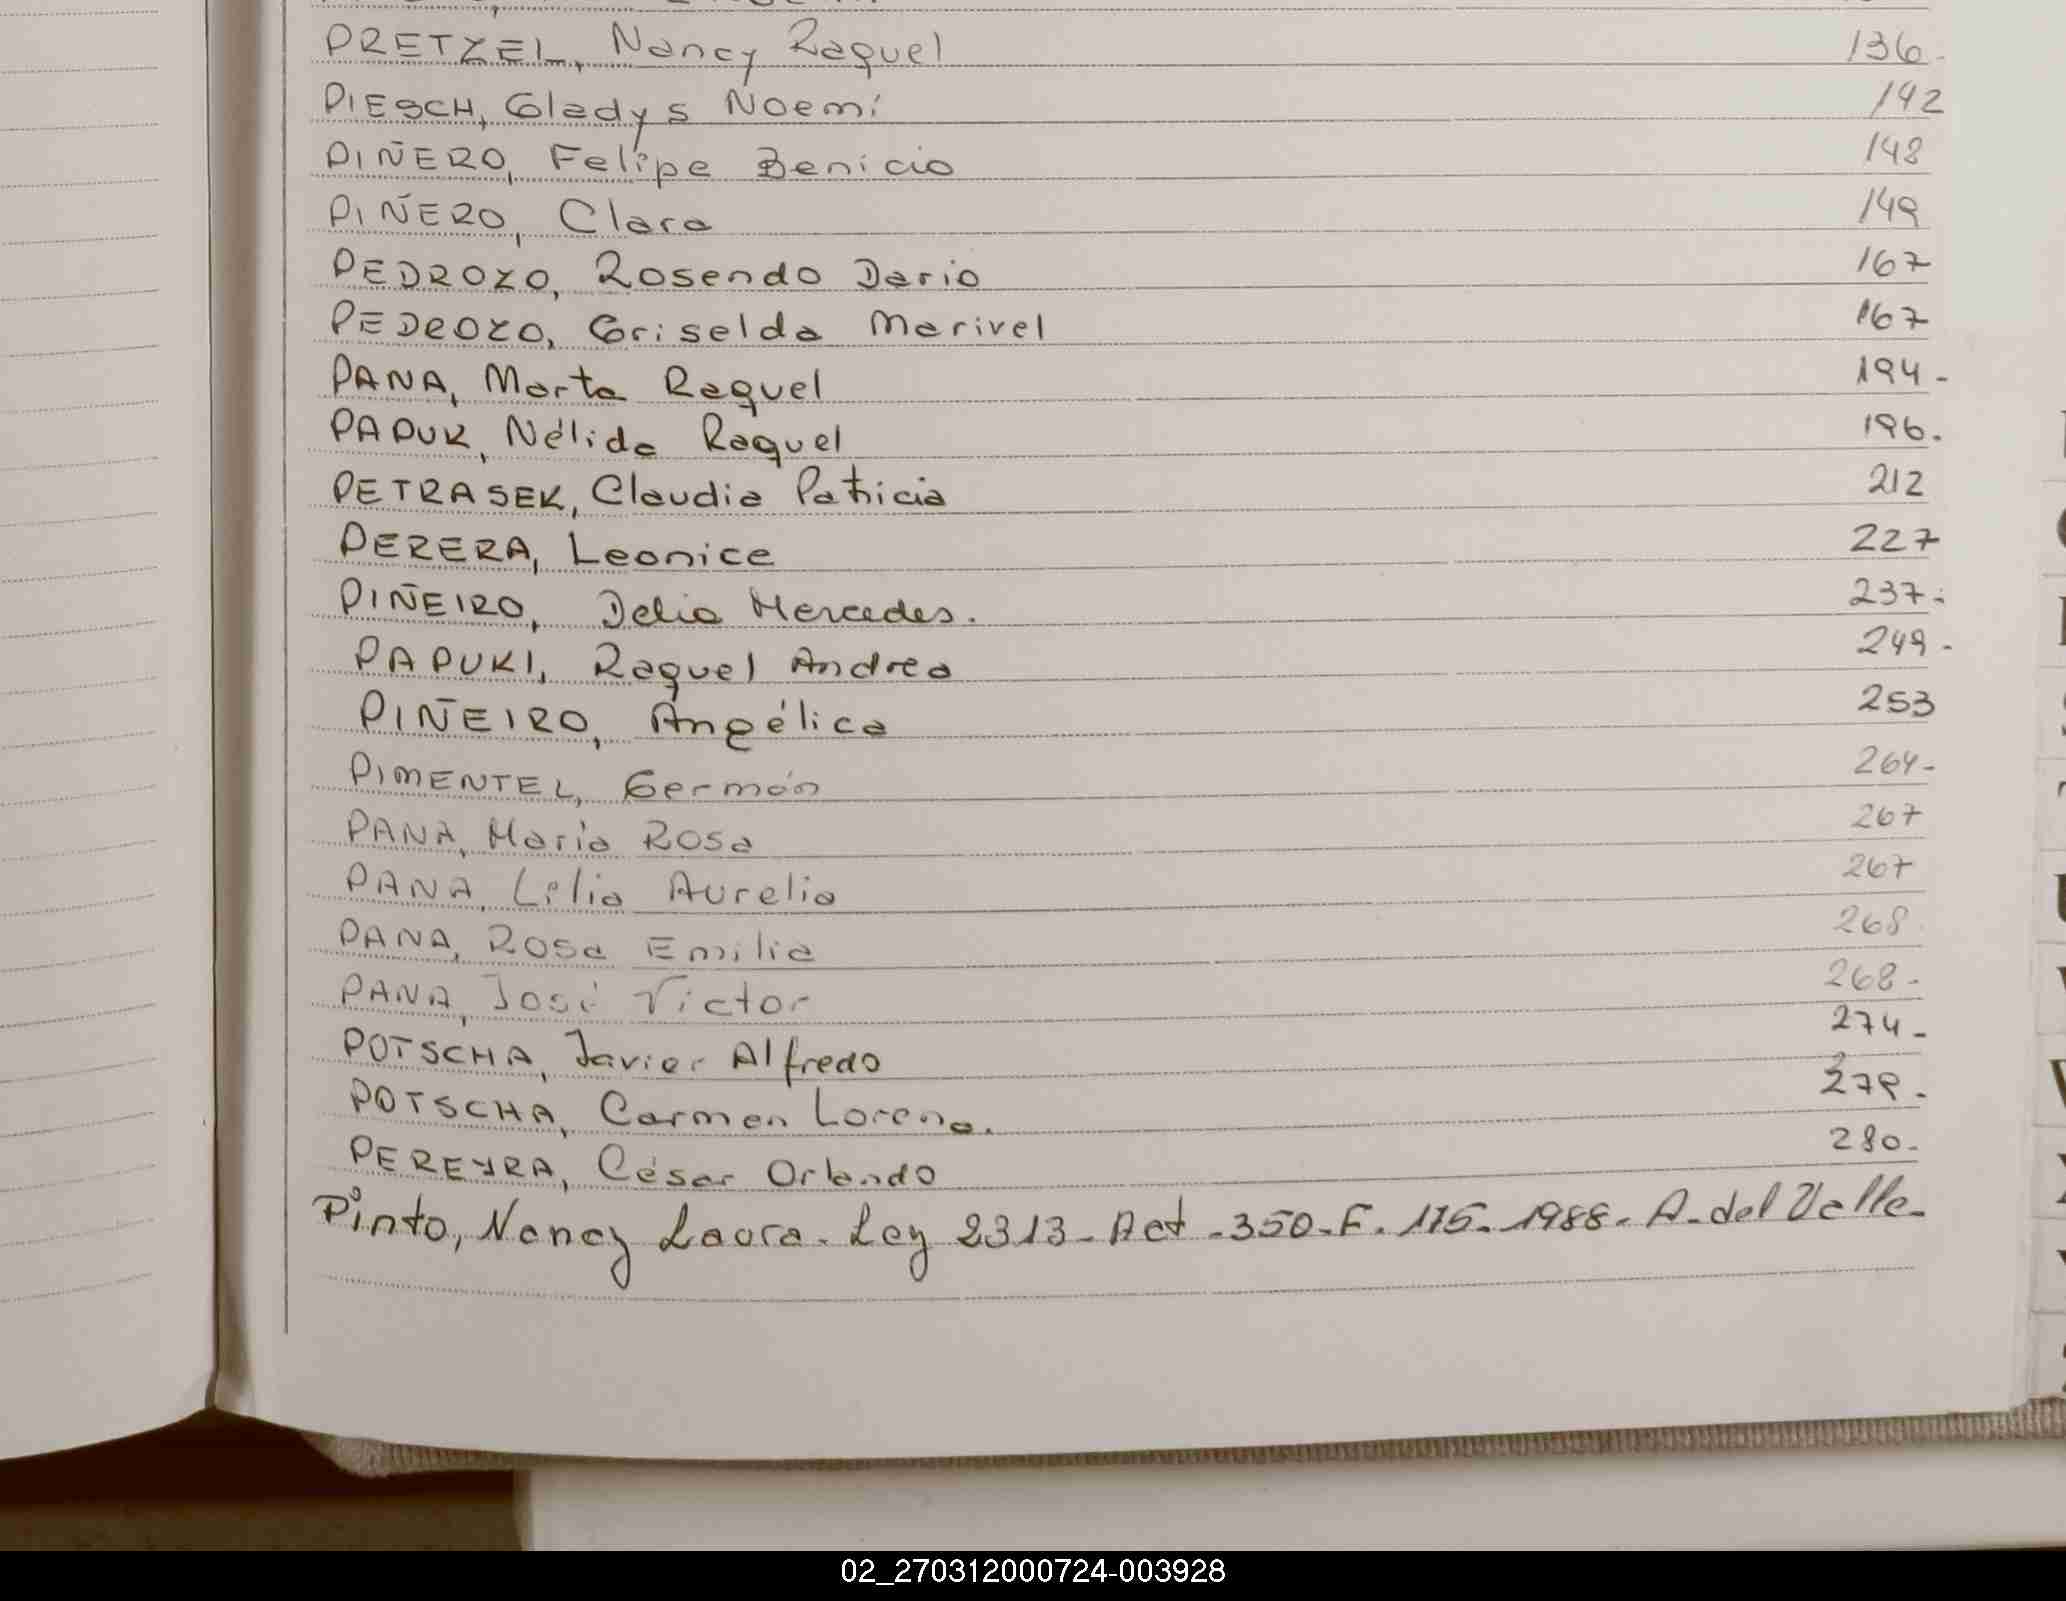 PRETZEL, Nancy Raquel 136.
PIESCH, Gladys Noemi 142
PIÑERO, Felipe Benicio 148
PIÑERO, Clara 149
PEDROZO, Rosendo Dario 167
PEDROZO, Griselda Marivel 167
PANA, Marta Raquel 194-
PAPUK, Nélida Raquel 196.
PETRASEK, Claudia Patricia 212
PERERA, Leonice 227
PIÑEIRO, Delia Mercedes. 237.
PAPUKI, Raquel Andrea 249-
PIÑEIRO, Angélica 253
PIMENTEL, Germán 264-
PANA, Maria Rosa 267
PANA, Lilia Aurelia 267
PANA, Rosa Emilia 268
PANA, José Victor 268-
POTSCHA, Javier Alfredo 274-
POTSCHA, Carmen Lorena. 279.
PEREYRA, César Orlando 280.
Pinto, Nancy Laura. Ley 2313- Act -350-F. 175-1988- A. del Valle-
02_270312000724-003928